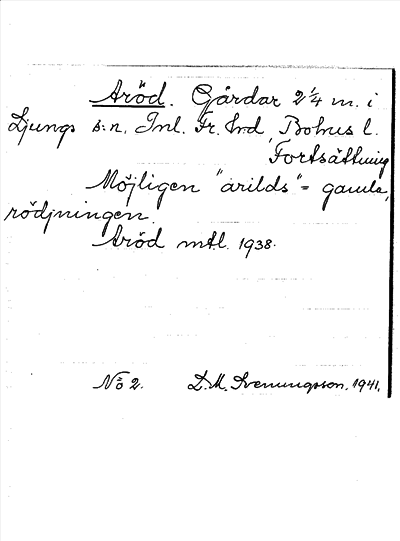 Aröd. Gårdar 2 1/4 m. i
Ljungs s:n, Inl. Fr. hd, Bohus l.
Fortsättning
Möjligen "arilds" = gamla,
rödjningen.
Aröd mtl. 1938.
No 2. D. M. Svenungsson. 1941.